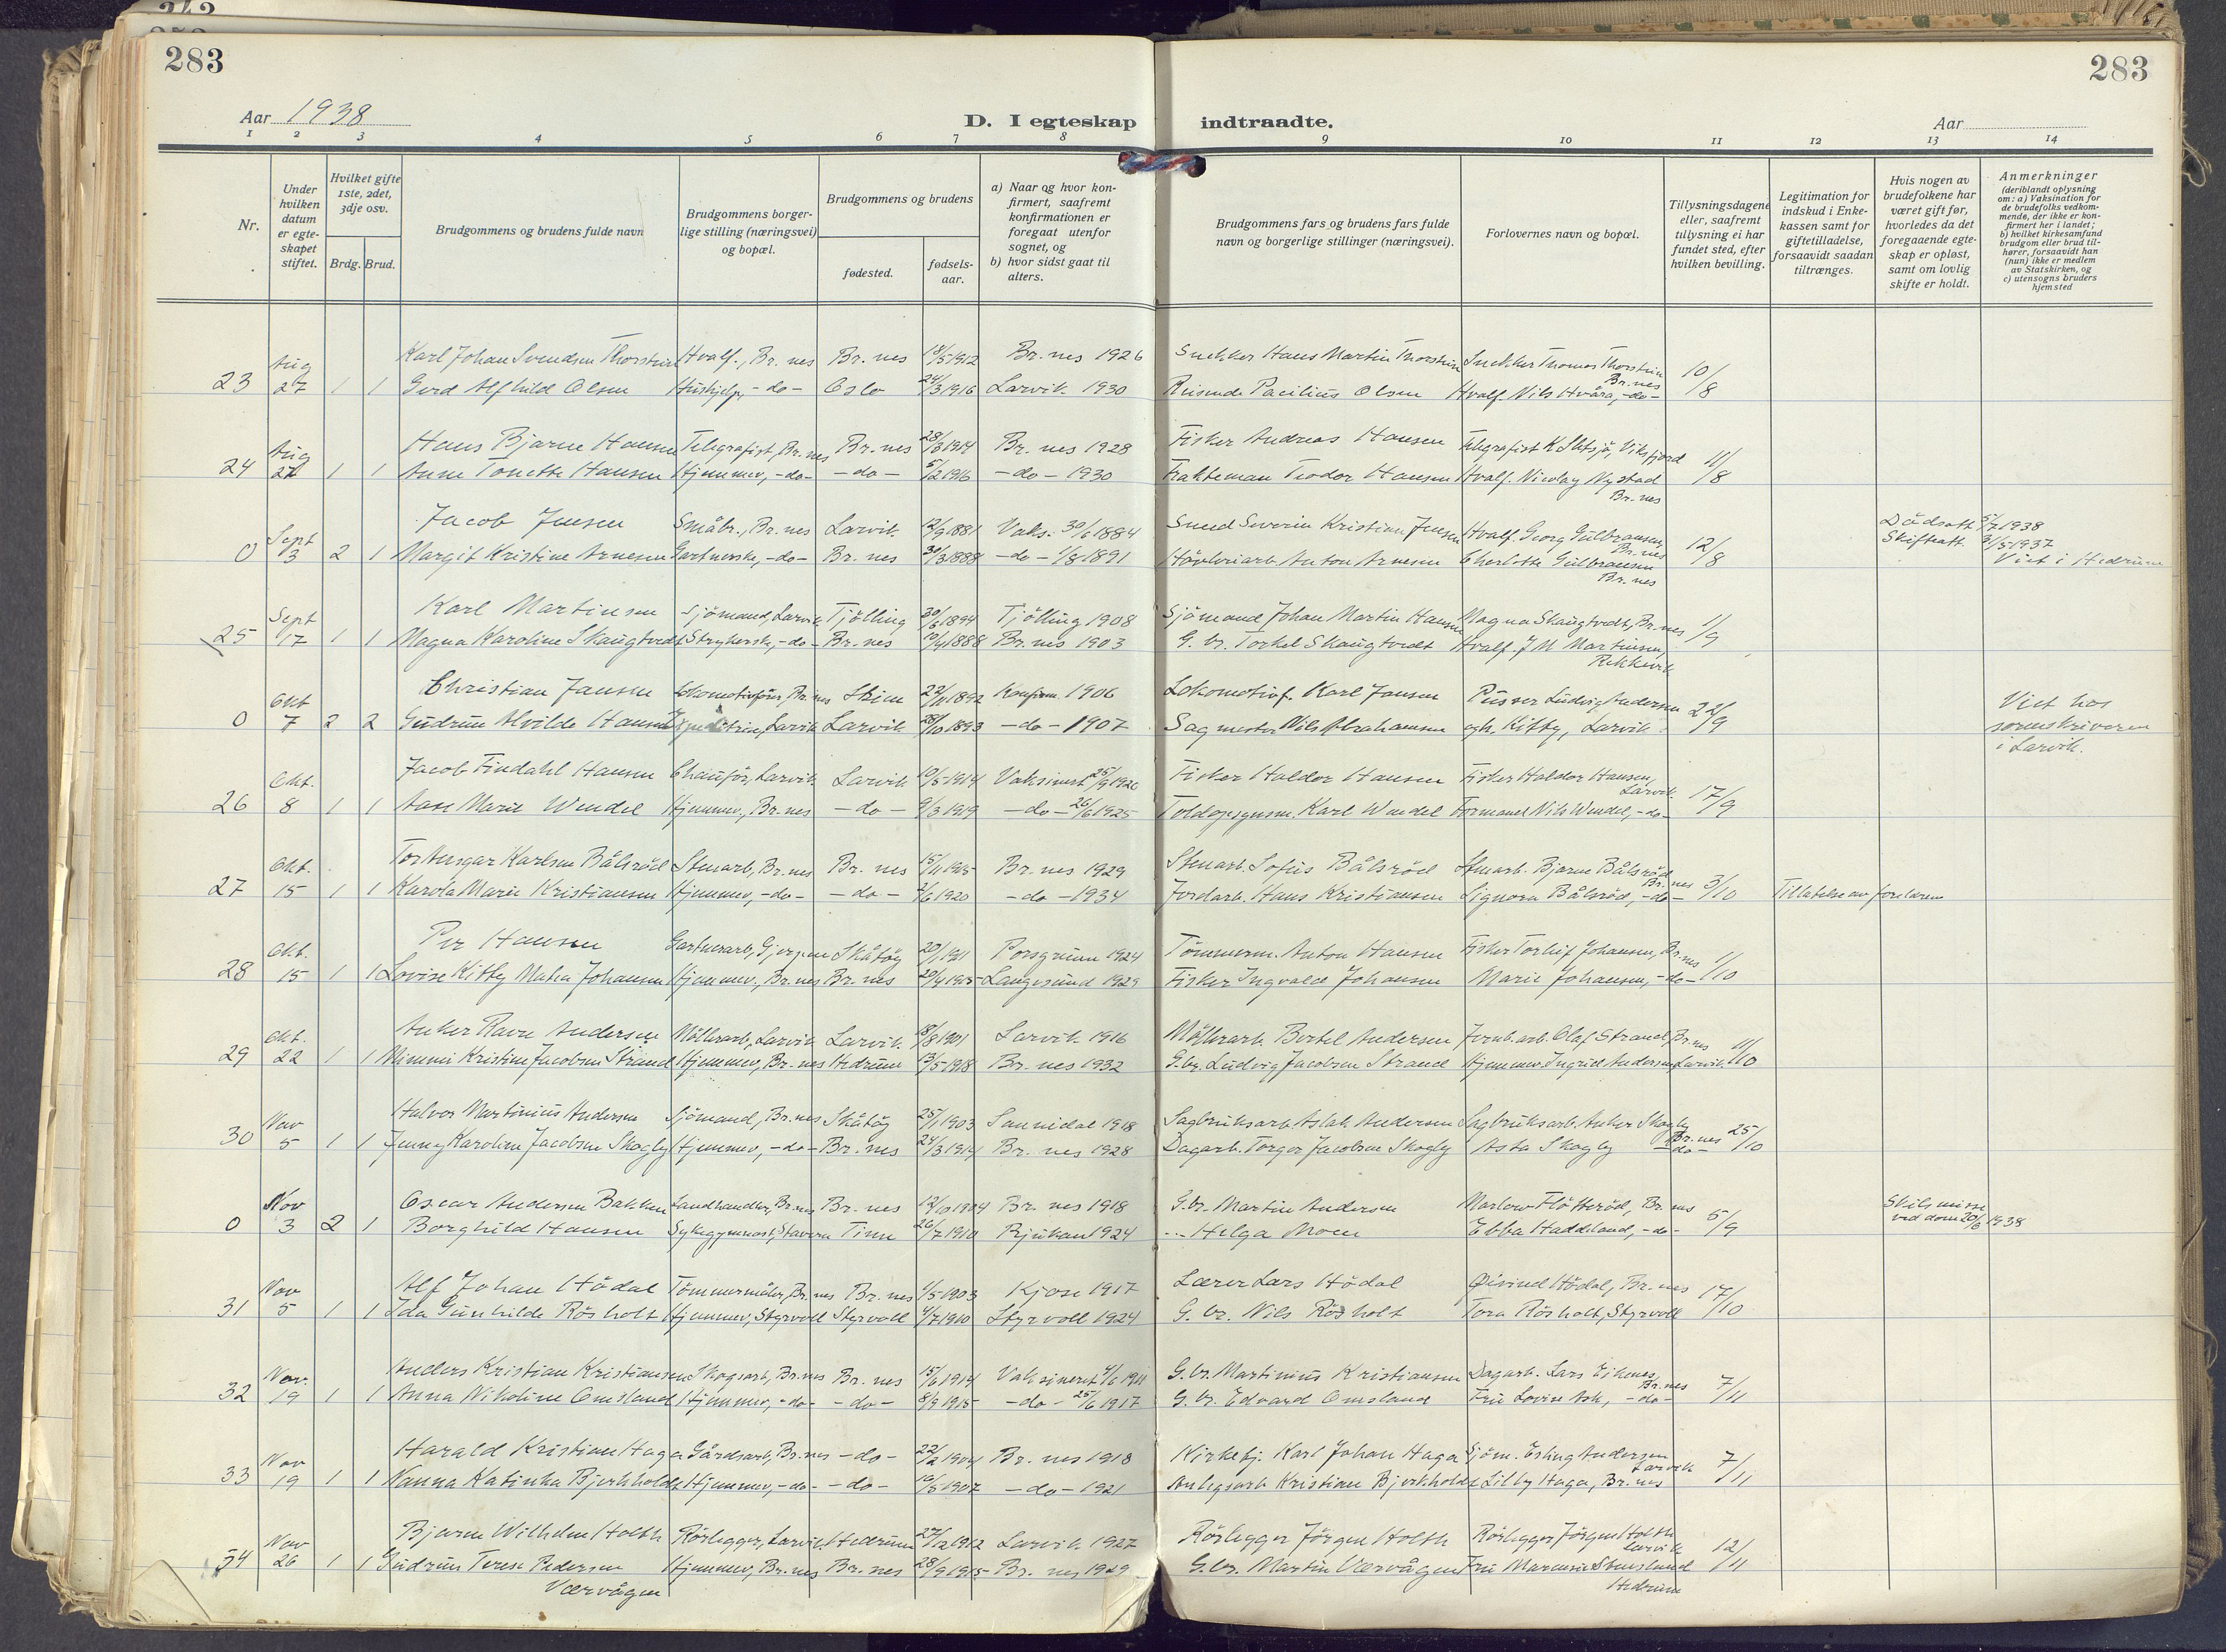 283
283
Aar 1938
D. I egteskap indtraadte.
Aar
1 2 3 4 5 6 7 8 9 10 11 12 13 14
Nr.
Under hvilken datum er egteskapet stiftet.
Hvilket gifte 1ste, 2det, 3dje osv.
Brdg. Brud.
Brudgommens og brudens fulde navn
Brudgommens borgerlige stilling (næringsvei) og bopæl.
Brudgommens og brudens
fødested.
fødselsaar.
a) Naar og hvor konfirmert, saafremt konfirmationen er foregaat utenfor sognet, og
b) hvor sidst gaat til alters.
Brudgommens fars og brudens fars fulde navn og borgerlige stillinger (næringsvei).
Forlovernes navn og bopæl.
Tillysningsdagene eller, saafremt tillysning ei har fundet sted, efter hvilken bevilling.
Legitimation for indskud i Enkekassen samt for giftetilladelse, forsaavidt saadan tiltrænges.
Hvis nogen av brudefolkene har været gift før, hvorledes da det foregaaende egteskap er opløst, samt om lovlig skifte er holdt.
Anmerkninger (deriblandt oplysning om: a) Vaksination for de brudefolks vedkommende, der ikke er konfirmert her i landet; b) hvilket kirkesamfund brudgom eller brud tilhører, forsaavidt han (hun) ikke er medlem av Statskirken, og c) utensogns bruders hjemsted
Aug Karl Johan Svendsen Thorstein Hvalf., Br. nes Br. nes 5/1912 Br. nes 1926 Snekker Hans Martin Thorstein Snekker Thomas Thorstein Br. nes 10/8
23 27 1 1 Gerd Alfhild Olsen Hushjelp, -do- Oslo 24/3 1916 Larvik 1930 Reisende Pacilius Olsen Hvalf. Nils Hvåra, -do-
Aug Hans Bjarne Hansen Telegrafist, Br. nes Br. nes 28/3 1914 Br. nes 1928 Fisker Andreas Hansen Telegrafist K. Viksfjord 11/8
24 27 1 1 Anne Tonette Hansen Hjemmev, -do- -do- 5/2 1916 -do- 1930 Frakteman Teodor Hansen Hvalf. Nicolay Nystad Br. nes
Sept Jacob Jensen Småbr., Br. nes Larvik 12/9 1881 Vaks. 30/6 1884 Smed Severin Kristian Jensen Hvalf. Georg Gulbransen, Br. nes 12/8 Dødsatt 5/7 1938
0 3 2 1 Margit Kristine Arnesen Gartnerske, -do- Br. nes 30/3 1888 -do- 1/8 1891 Høvleriarb. Anton Arnesen Charlotte Gulbransen Br. nes Skifteatt. 31/5 1937 Viet i Hedrum
Sept Karl Martinsen Sjømand, Larvik Tjølling 30/6 1894 Tjølling 1908 Sjømand Johan Martin Hansen Magna Skaugtvedt, Br. nes 1/9
25 17 1 1 Magna Karoline Skaugtvedt Strykerske, -do- Br. nes 10/4 1888 Br. nes 1903 G. br. Torkel Skaugtvedt Hvalf. J M Martinsen, Rekkevik
Okt Christian Jansen Lokomotivfører, Br. nes Skien 22/11 1892 Konfirm. 1906 Lokomotivf. Karl Jansen Pusser Ludvig Andersen 22/9 Viet hos
0 7 2 2 Gudrun Alvilde Hansen Larvik Larvik 28/10 1893 -do- 1907 Sagmester Nils Abrahamsen og h. Kitty, Larvik sorenskriveren i Larvik.
Okt. Jacob Findahl Hansen Chauffør, Larvik Larvik 10/5 1914 Vaksinert 25/9 1920 Fisker Haldor Hansen Fisker Haldor Hansen, Larvik 17/9
26 8 1 1 Aase Marie Wendel Hjemmev., Br. nes -do- 9/3 1919 -do- 26/6 1925 Toldopsynsm. Karl Wendel Formand Nils Wendel, -do-
Okt. Tor Ansgar Karlsen Bålsrød Stenarb., Br. nes Br. nes 15/11 1915 Br. nes 1929 Stenarb. Sofus Bålsrød Stenarb. Bjarne Bålsrød Br. nes 3/10
27 15 1 1 Karola Marie Kristiansen Hjemmev, -do- -do- /6 1920 -do- 1934 Jordarb. Hans Kristiansen Signora Bålsrød, -do- Tillatelse av foreldrene
Okt. Per Hansen Gartnerarb., Gjerpen Skåtøy 20/1 1911 Porsgrunn 1924 Tømmerm. Anton Hansen Fisker Torleif Johansen, Br. nes 1/10
28 15 1 1 Lovise Kitty Matea Johansen Hjemmev., Br. nes Br. nes 20/4 1915 Langesund 1929 Fisker Ingvald Johansen Marie Johansen, -do-
Okt. Anker Ravn Andersen Møllerarb., Larvik Larvik 18/8 1901 Larvik 1916 Møllerarb. Bertel Andersen Jernb. arb. Olaf Strand, Br. nes 11/10
29 22 1 1 Mimmi Kristine Jacobsen Strand Hjemmev., Br. nes Hedrum 13/5 1918 Br. nes 1932 G. br. Ludvig Jacobsen Strand Hjemmev. Ingrid Andersen, Larvik
Nov Halvor Martinius Andersen Sjømand, Br. nes Skåtøy 25/1 1903 Sannidal 1918 Sagbruksarb. Aslak Andersen Sagbruksarb. Anker Skogly Br. nes 25/10
30 5 1 1 Jenny Karoline Jacobsen Skogly Hjemmev, -do- Br. nes 24/3 1914 Br. nes 1928 Dagarb. Torger Jacobsen Skogly Asta Skogly -do-
Nov Oscar Andersen Bakken Landhandler, Br. nes Br. nes 12/10 1904 Br. nes 1918 G. br. Martin Andersen Marlow Fløtterød, Br. nes 5/9 Skilsmisse
0 3 2 1 Borghild Hansen Sykegymnast, Stavern Tinn 26/7 1910 Rjukan 1924 Helga Moen Ebba Haddeland, -do- ved dom 20/6 1938
Nov Alf Johan Hødal Tømmermåler, Br. nes Br. nes 1/5 1903 Kjose 1917 Lærer Lars Hødal Øivind Hødal, Br. nes 17/10
31 5 1 1 Ida Gunhilde Røsholt Hjemmev, Styrvoll Styrvoll 4/7 1910 Styrvoll 1924 G. br. Nils Røsholt Tora Røsholt, Styrvoll
Nov. Anders Kristian Kristiansen Skogsarb., Br. nes Br. nes 15/6 1914 Vaksinert G. br. Martinius Kristiansen Dagarb. Lars Eikenes, Br. nes 7/11
32 19 1 1 Anna Nikoline Omsland Hjemmev, -do- -do- 8/9 1915 -do- 25/6 1917 G. br. Edvard Omsland Fru Lovise Ask, -do-
Nov Harald Kristian Haga Gårdsarb, Br. nes -do- 22/2 1904 Br. nes 1918 Kirketj. Karl Johan Haga Sjøm. Esling Andersen Larvik 7/11
33 19 1 1 Nanna Katinka Bjerkholdt Hjemmev, -do- -do- 10/8 1907 -do- 1921 Anlegsarb. Kristian Bjerkholdt Lilly Haga, Br. nes
Nov Bjarne Wilhelm Holth Rørlegger, Larvik Hedrum 27/12 1912 Larvik 1927 Rørlegger Jørgen Holth Rørlegger Jørgen Holth Larvik 12/11
34 26 1 1 Gudrun Terese Pedersen Værvågen Hjemmev, Br. nes Br. nes 28/9 1915 Br. nes 1929 G. br. Martin Værvågen Fru Hedrum